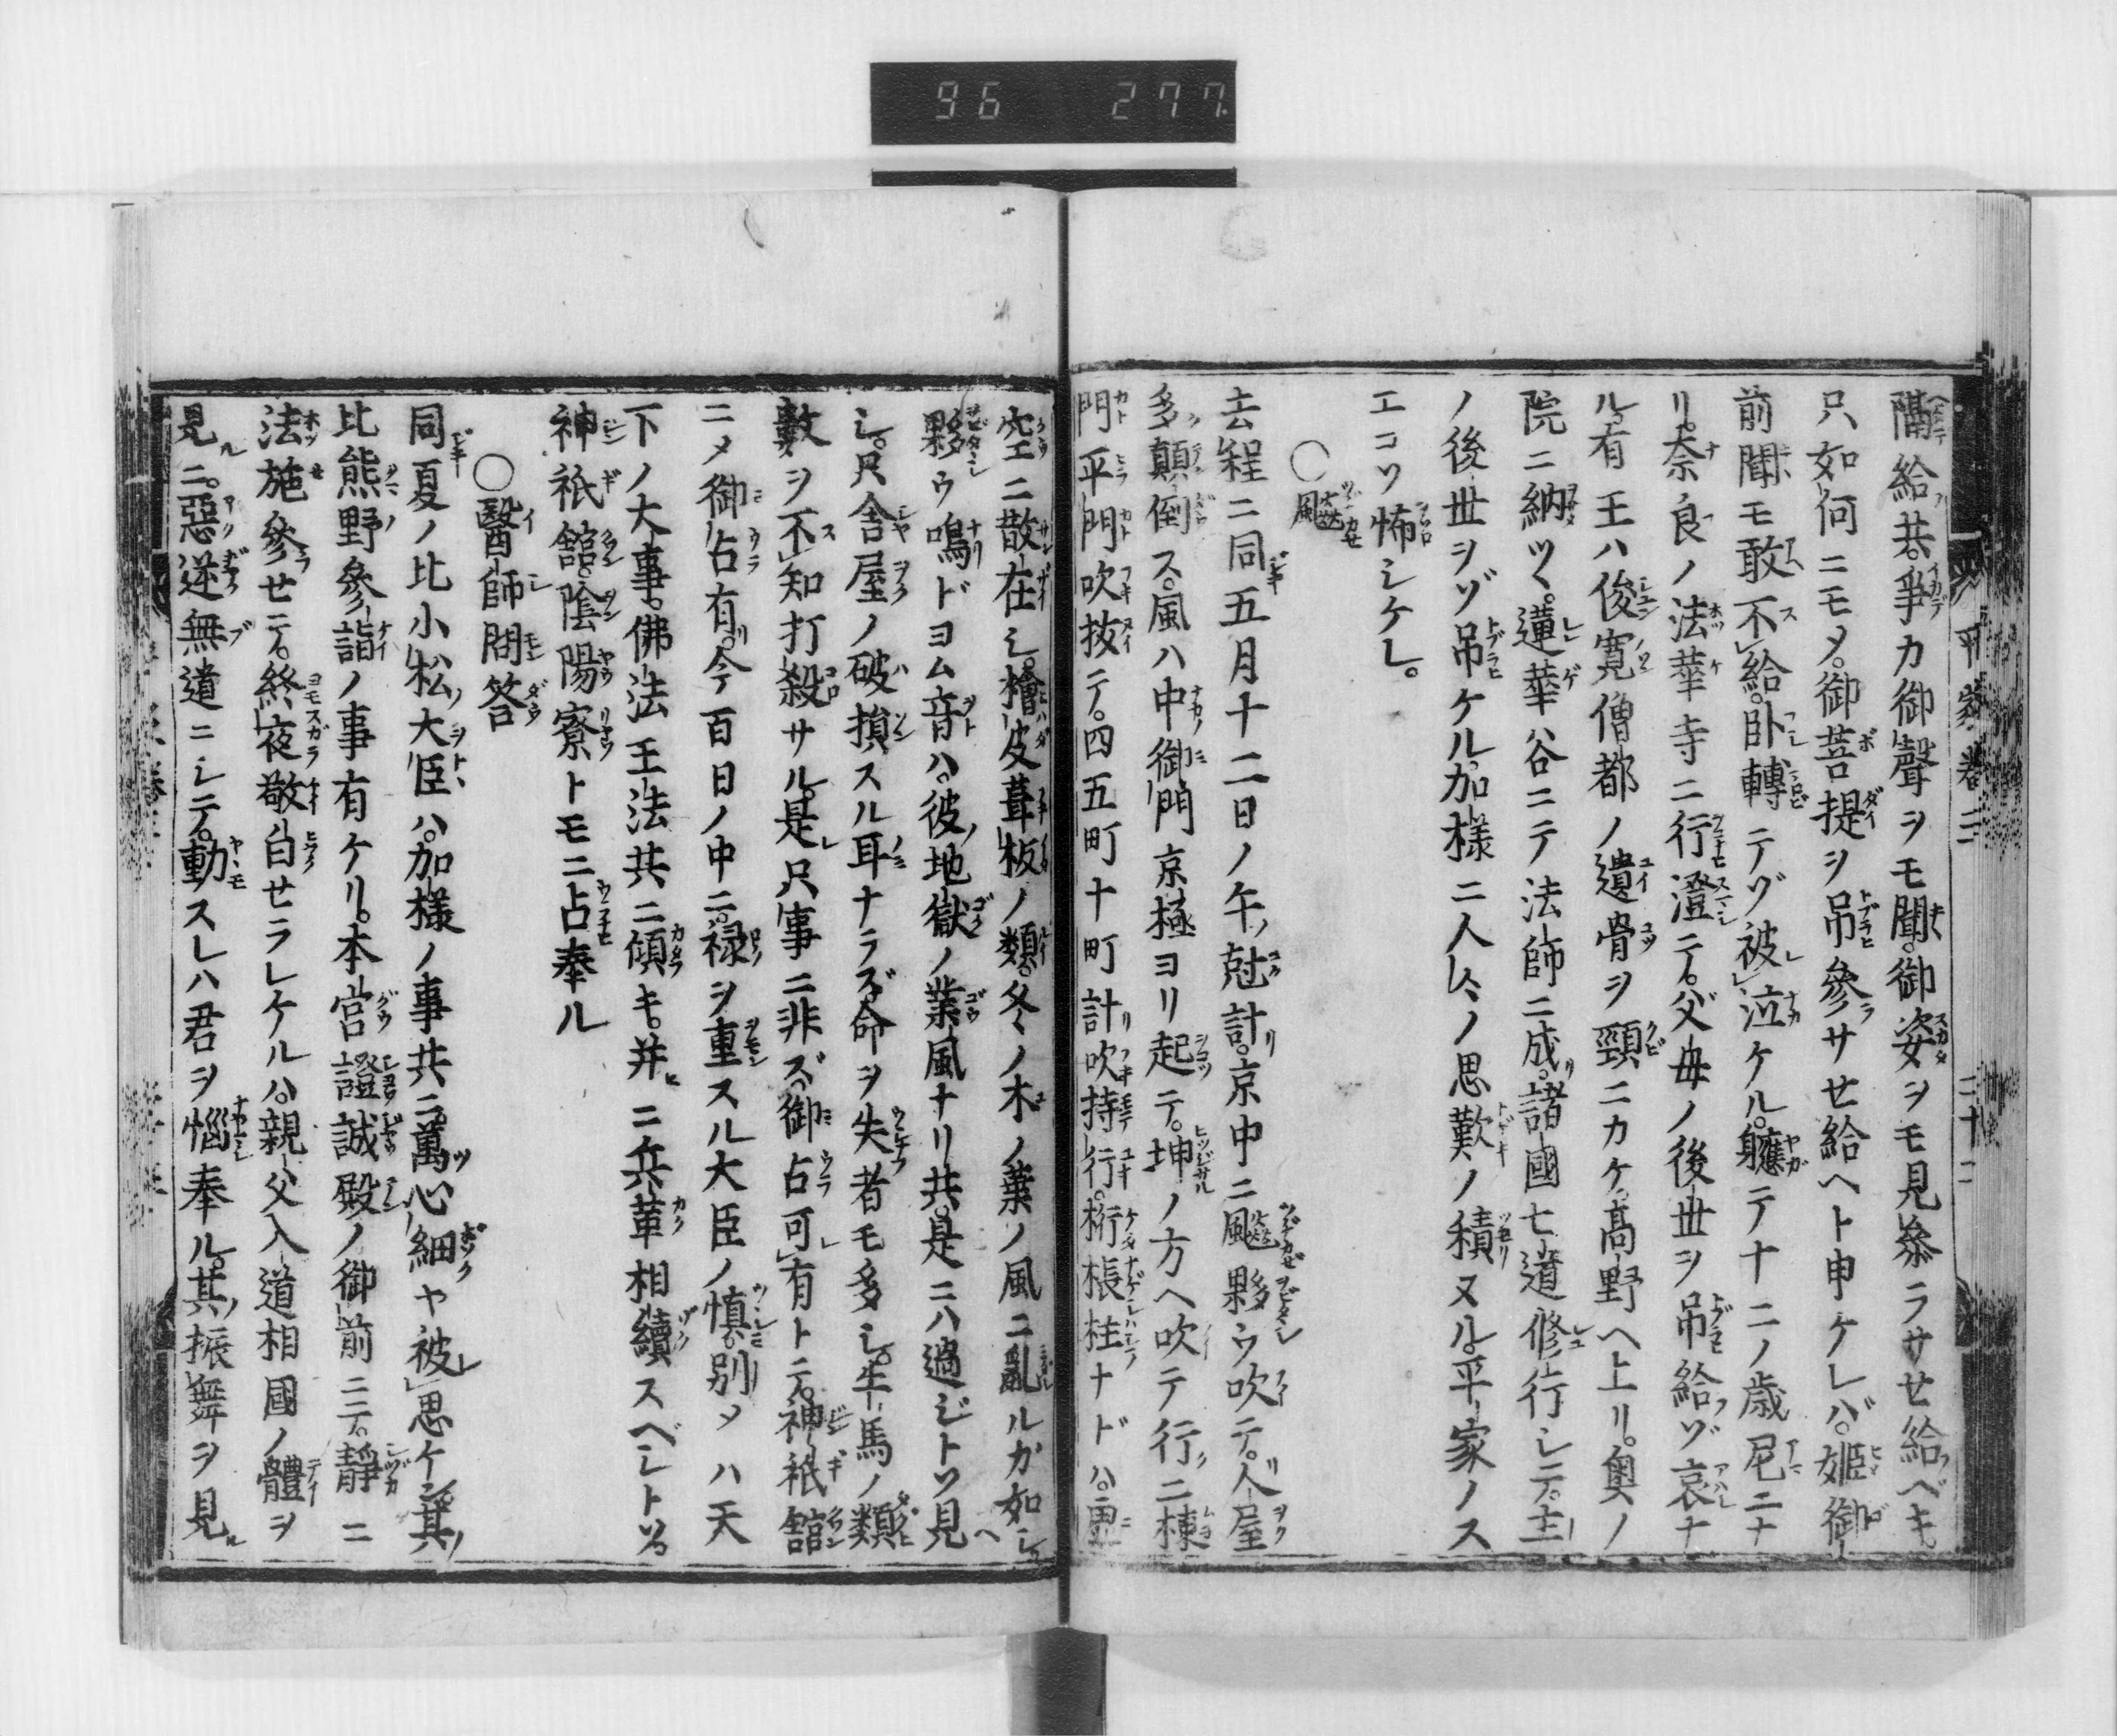 96 277
隔給共。爭カ御聲ヲモ聞。御姿ヲモ見參ラサセ給ベキ。
只如何ニモメ。御菩提ヲ吊參サセ給ヘト申ケレバ。姬御
前聞モ敢不給。臥轉テヅ被泣ケル。軈テ十二ノ歳尼ニナ
リ。奈良ノ法華寺ニ行澄テ。父母ノ後世ヲ吊給ゾ哀ナ
ル。有王ハ俊寬僧都ノ遺骨ヲ頸ニカケ。高野ヘ上リ。奧ノ
院ニ納ツヽ。蓮華谷ニテ法師ニ成。諸國七道修行シテ。主
ノ後世ヲゾ吊ケル。加樣ニ人々ノ思歎ノ積ヌル。平家ノス
エコソ怖シケレ。
○飈
去程ニ同五月十二日ノ午ノ尅計。京中ニ飈夥ウ吹テ。人屋
多顛倒ス。風ハ中御門京極ヨリ起テ。坤ノ方ヘ吹テ行ニ棟
門平門吹拔テ。四五町十町計吹持行。桁長押柱ナドハ。虛
空ニ散在シ。檜皮葺板ノ類。冬ノ木ノ葉ノ風ニ亂ルカ如シ。
夥ウ鳴ドヨム音ハ。彼地獄ノ業風ナリ共。是ニハ過ジトソ見ヘ
シ。只舍屋ノ破損スル耳ナラズ。命ヲ失者モ多シ。牛馬ノ類
數ヲ不知打殺サル。是只事ニ非ズ。御占可有トテ。神祇舘
ニメ御占有。今百日ノ中ニ。禄ヲ重スル大臣ノ愼。別メハ天
下ノ大事。佛法王法共ニ傾キ。并ニ兵革相續スベシトソ。
神祇舘。陰陽寮トモニ占奉ル
○醫師問答
同夏ノ比小松大臣ハ。加樣ノ事共ニ萬心細ヤ被思ケン。其
比熊野參詣ノ事有ケリ。本宮證誠殿ノ御前ニテ。靜ニ
法施參セテ。終夜敬白セラレケルハ。親父入道相國ノ體ヲ
見ニ。惡逆無道ニシテ。動スレハ君ヲ惱奉ル。其振舞ヲ見